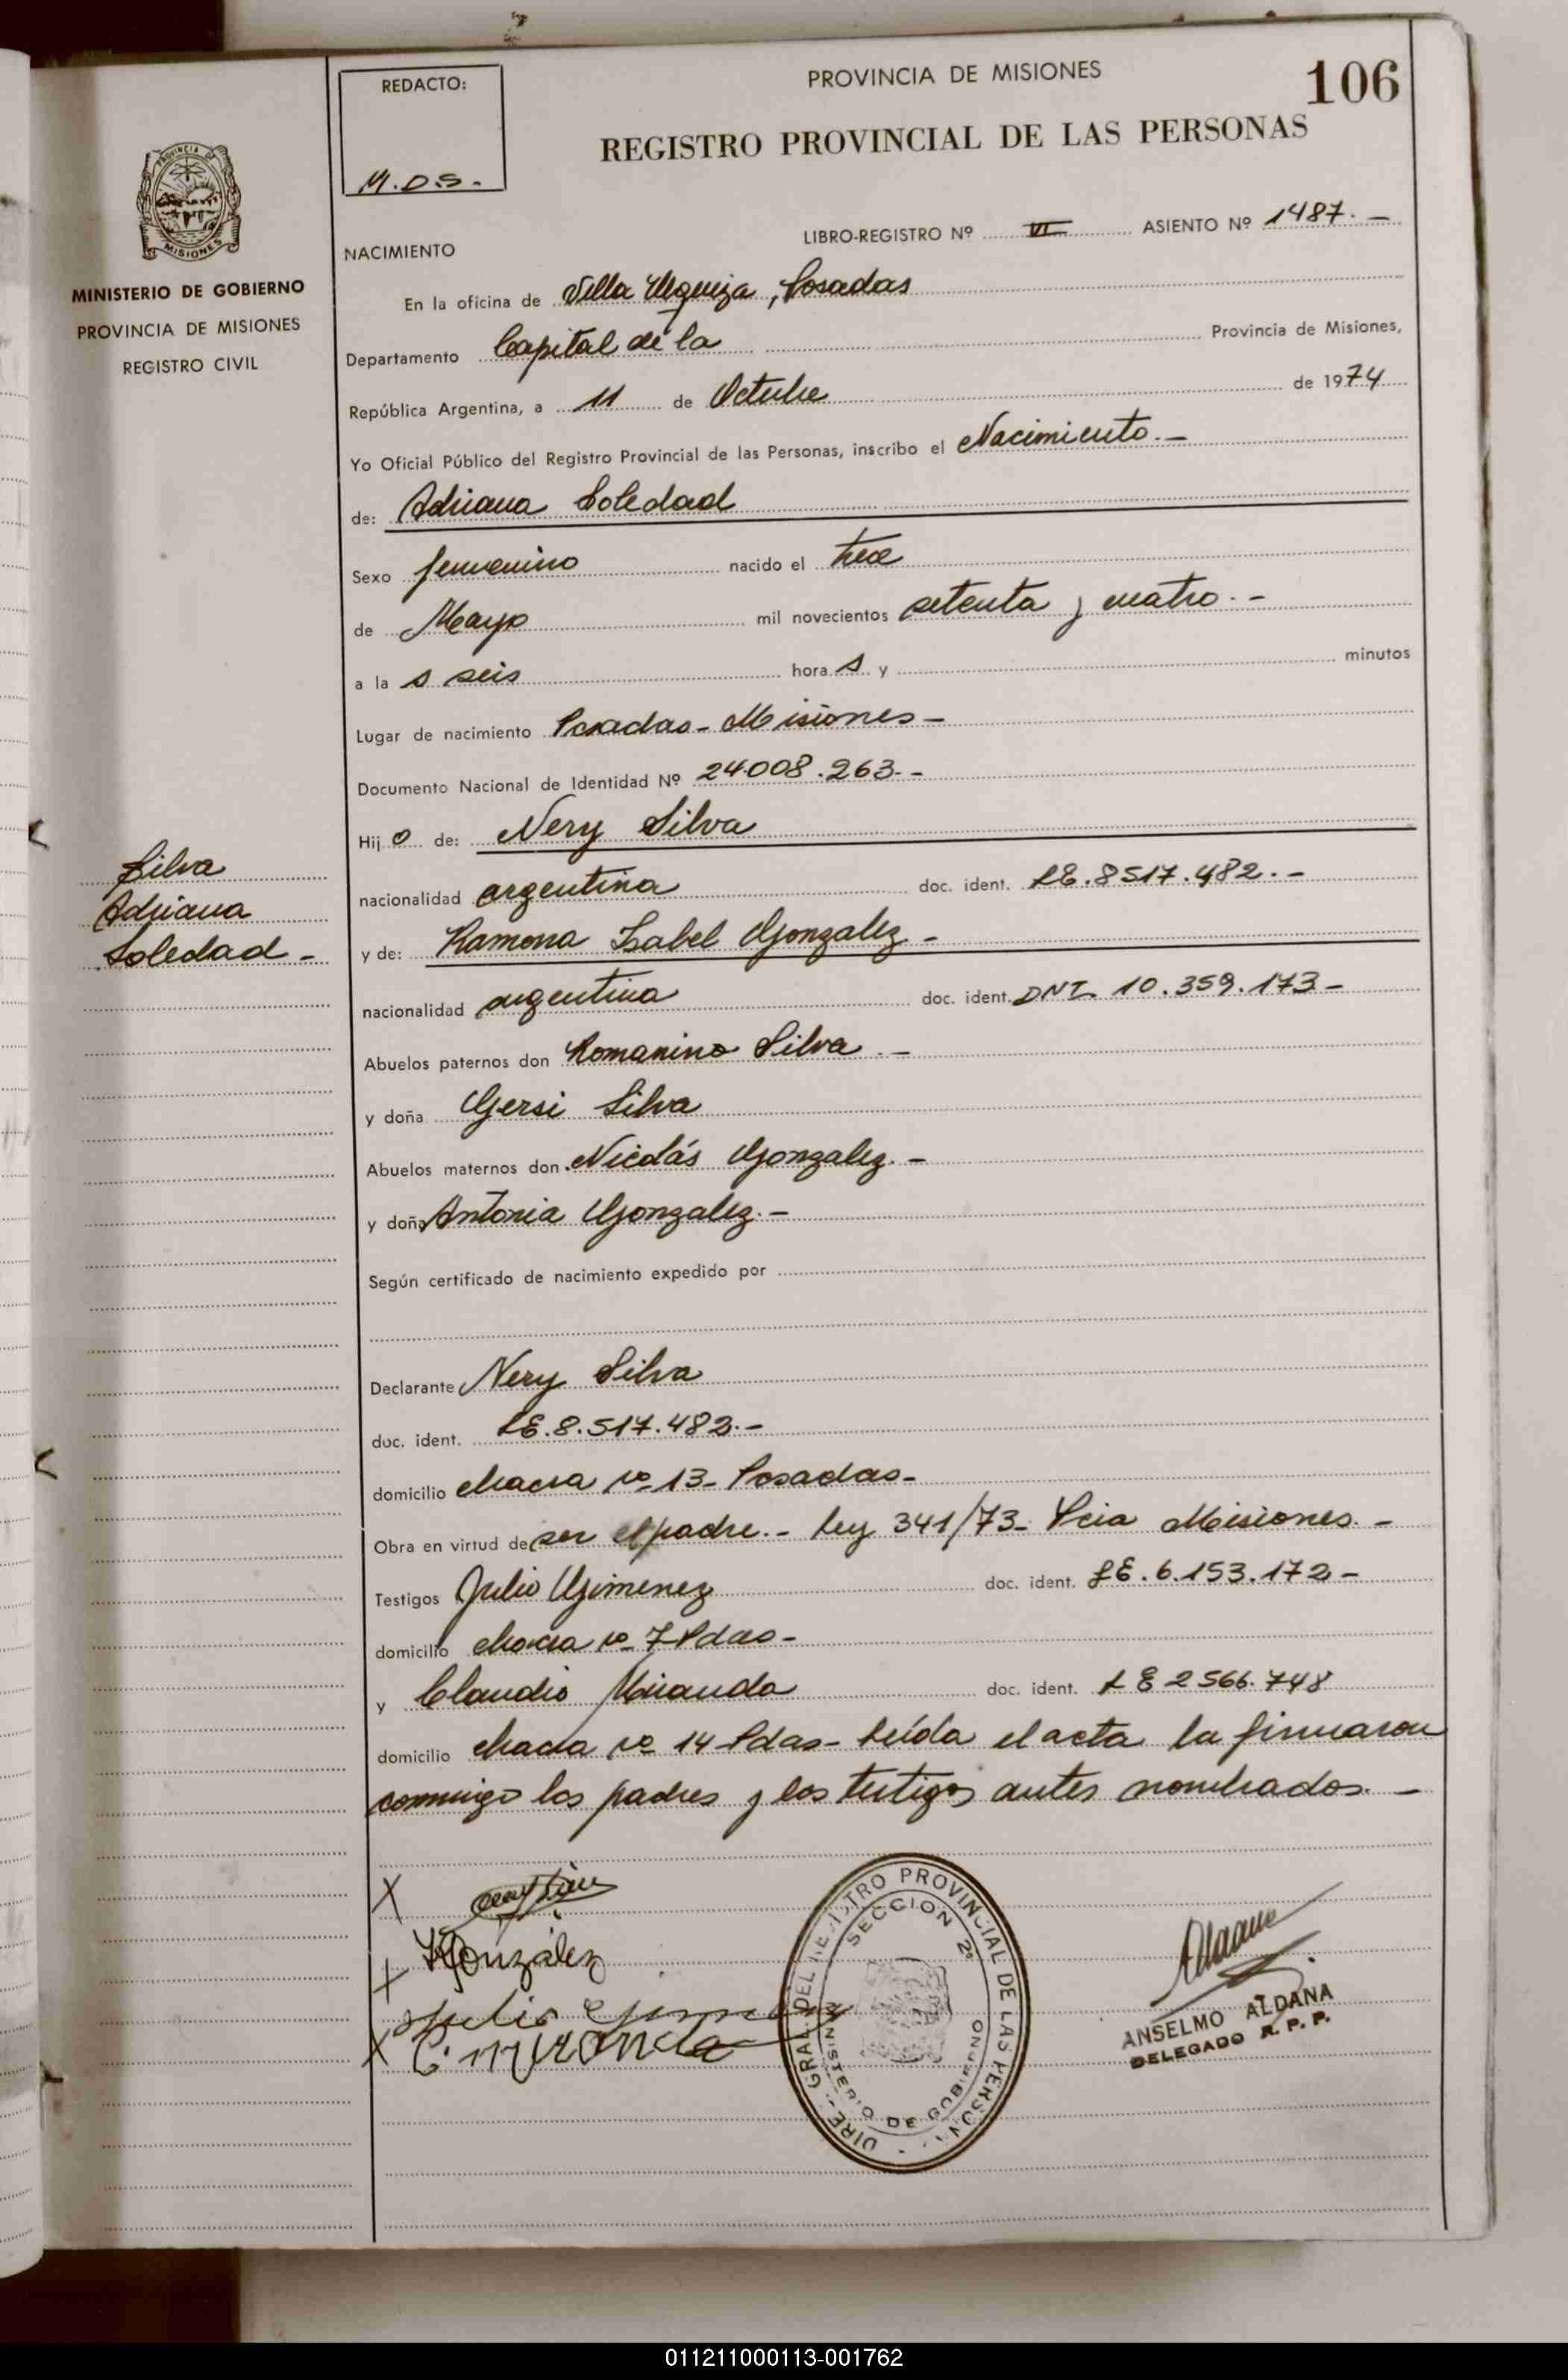 REDACTO:
M.D.S.-
PROVINCIA DE MISIONES
106
REGISTRO PROVINCIAL DE LAS PERSONAS
PROVINCIA DE
MISIONES
MINISTERIO DE GOBIERNO
PROVINCIA DE MISIONES
REGISTRO CIVIL
NACIMIENTO
LIBRO-REGISTRO Nº VI ASIENTO Nº 1487.-
En la oficina de Villa Urquiza, Posadas
Departamento Capital de la Provincia de Misiones,
República Argentina, a 11 de Octubre de 1974
Yo Oficial Público del Registro Provincial de las Personas, inscribo el Nacimiento.-
de: Adriana Soledad
Sexo femenino nacido el trece
de Mayo mil novecientos setenta y cuatro.-
a la s seis hora s y minutos
Lugar de nacimiento Posadas-Misiones-
Documento Nacional de Identidad Nº 24.008.263.-
Hij o de: Nery Silva
nacionalidad argentina doc. ident. LE.8517.482.-
y de: Ramona Isabel Gonzalez-
nacionalidad argentina doc. ident. DNI. 10.359.173-
Abuelos paternos don Romanino Silva.-
y doña Gersi Silva
Abuelos maternos don Nicolás Gonzalez.-
y doña Antonia Gonzalez.-
Según certificado de nacimiento expedido por
Declarante Nery Silva
doc. ident. LE.8.517.482.-
domicilio chacra nº 13- Posadas-
Obra en virtud de ser el padre.- Ley 341/73- Pcia Misiones.-
Testigos Julio Gimenez doc. ident. LE.6.153.172-
domicilio chacra nº 7-Pdas-
y Claudio Miranda doc. ident. LE 2566.748
domicilio chacra nº 14-Pdas- Leída el acta la firmaron
conmigo los padres y los testigos antes nombrados.-
Silva
Adriana
Soledad-
X
X González
Julio Gimenez
X C. miranda
DIRE.. GRAL. DEL REGISTRO PROVINCIAL DE LAS PERSON..
SECCION 2ª
MINISTERIO DE GOBIERNO
Aldana
ANSELMO ALDANA
DELEGADO R. P. P.
011211000113-001762